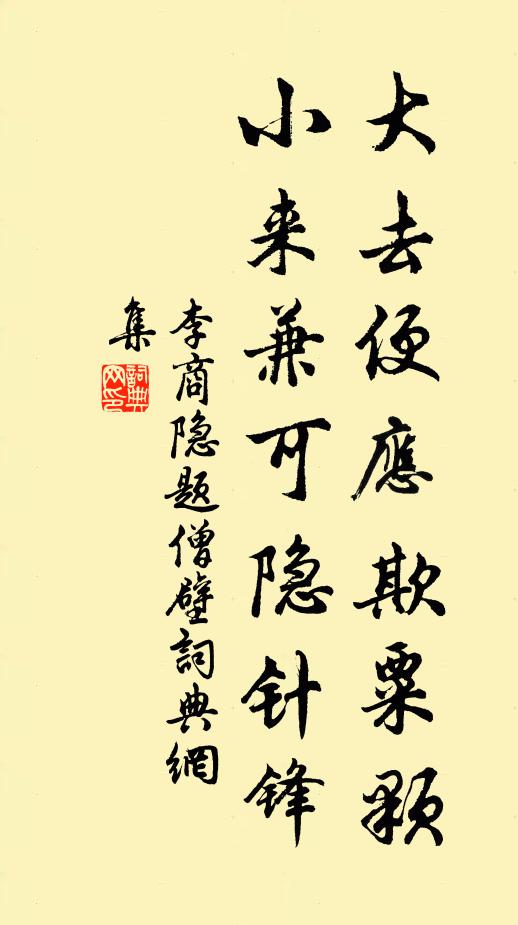 大去便應欺粟颗
小来兼可隐针锋
李商隐题僧壁詞典網
集
詞典网印